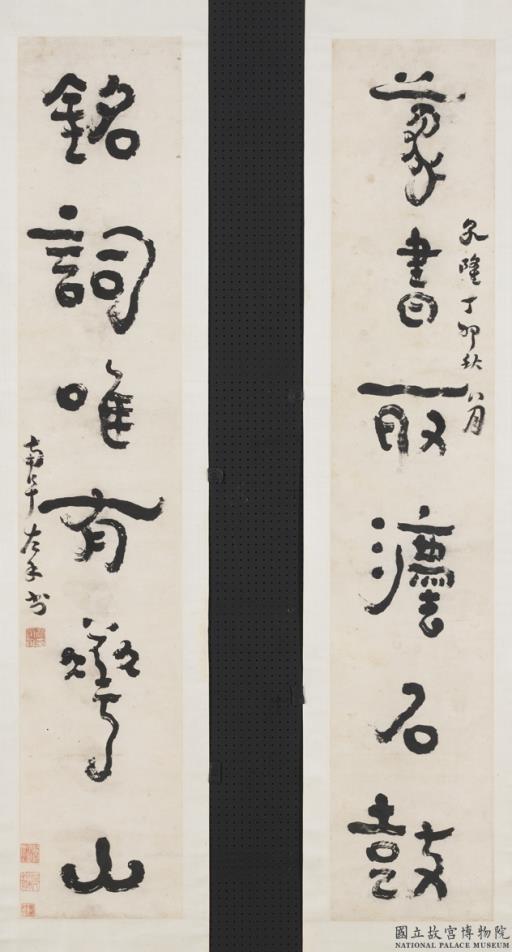 篆書冣
石鼓
乾隆丁卯秋八月
銘詞唯有華山
南阜左手書
國立故宮博物院
NATIONAL PALACE MUSEUM